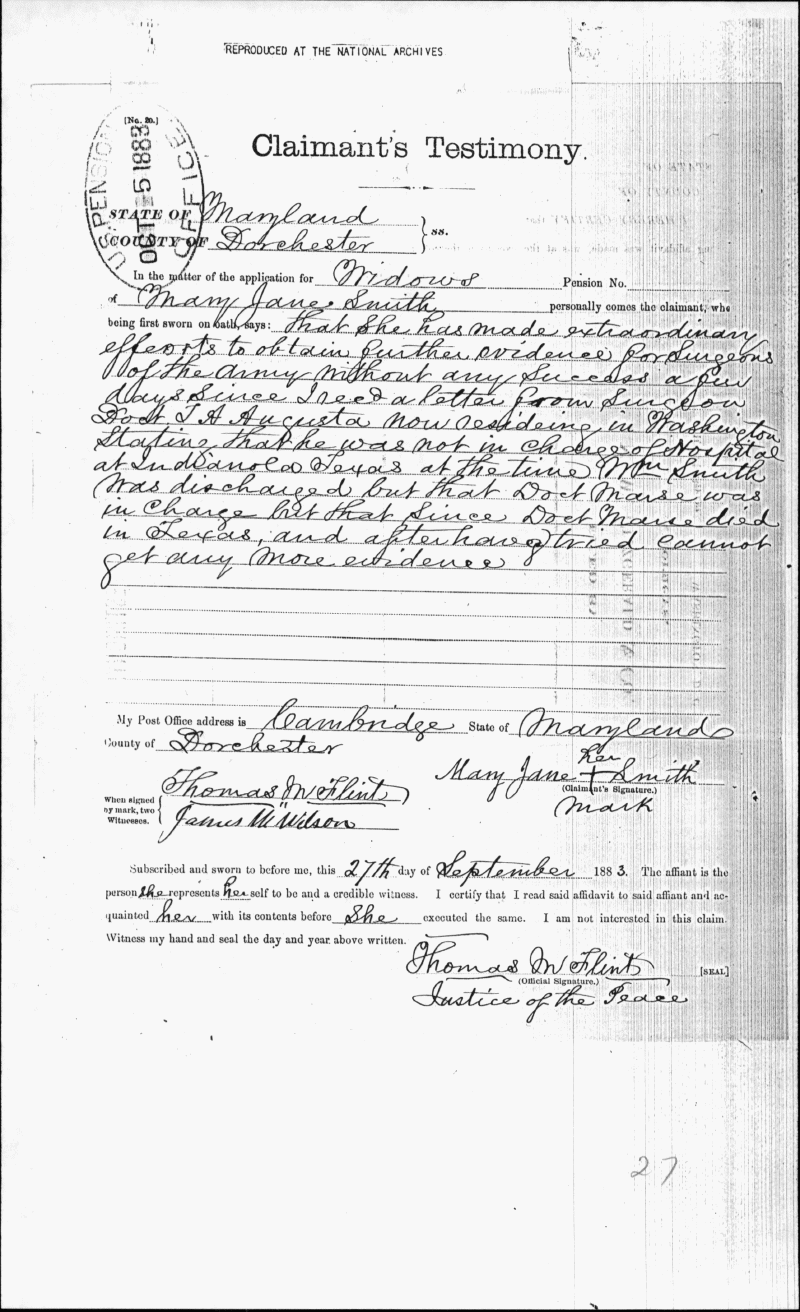 REPRODUCED AT THE NATIONAL ARCHIVES
[No. 20.]
U.S. PENSION OFFICE
OCT 5 1883
Claimant's Testimony.
STATE OF Maryland
COUNTY OF Dorchester } ss.
In the matter of the application for Widows Pension No.
of Mary Jane Smith personally comes the claimant, who
being first sworn on oath, says: that She has made extraordinary
efferorts to obtain further evidence for Surgeons
of the Army without any Success a few
days Since I recd a letter from Surgeon
Doct T A Augusta now resideing in Washington
Stating that he was not in Charge of Hospital
at Indianola Texas at the time Wm Smith
was discharged but that Doct Marse was
in Charge but that Since Doct Marse died
in Texas, and after having tried cannot
get any More evidence
My Post Office address is Cambridge State of Maryland
County of Dorchester
her
Mary Jane + Smith
(Claimant's Signature.)
mark
When signed by mark, two Witnesses. {
Thomas M Flint
James W Wilson
Subscribed and sworn to before me, this 27th day of September 1883. The affiant is the
person she represents her self to be and a credible witness. I certify that I read said affidavit to said affiant and ac-
quainted her with its contents before She executed the same. I am not interested in this claim.
Witness my hand and seal the day and year above written.
Thomas M Flint [SEAL]
(Official Signature.)
Justice of the Peace
27